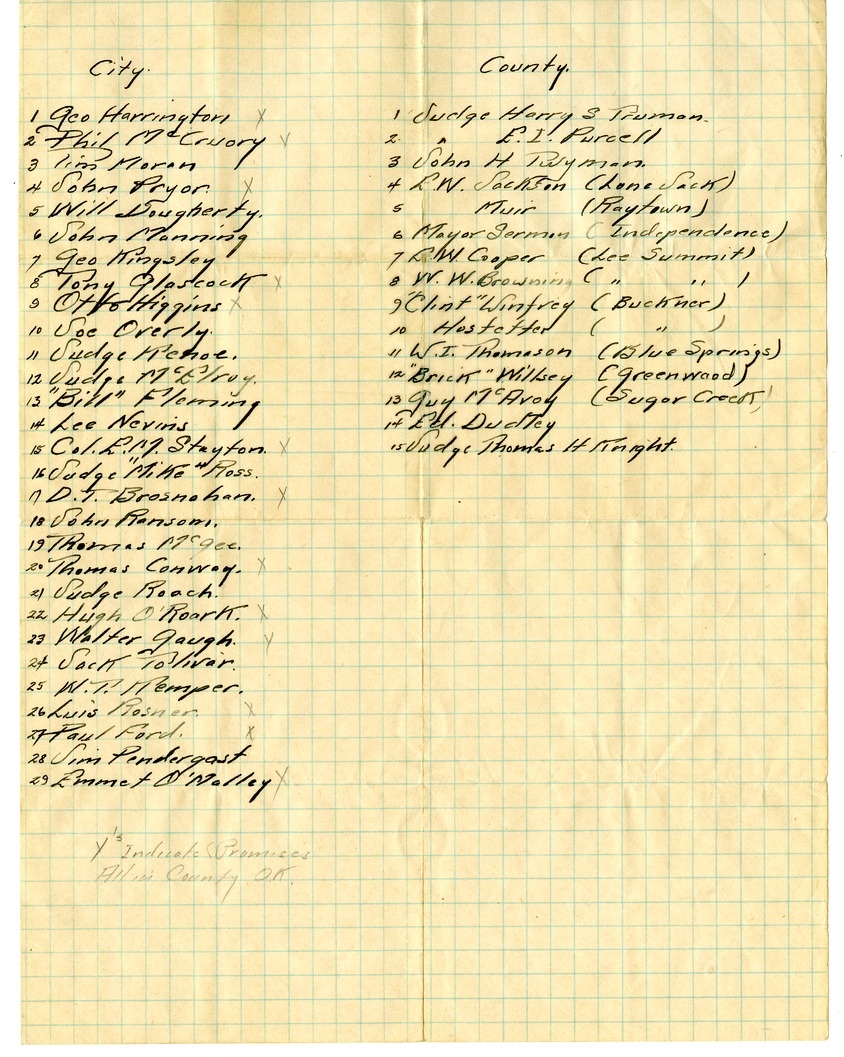 City.
1 Geo Harrington X
2 Phil McCruory X
3 Tim Moran
4 John Pryor. X
5 Will Dougherty.
6 John Manning
7 Geo Kingsley
8 Tony Glascock X
9 Otto Higgins X
10 Joe Overly.
11 Judge Kehoe.
12 Judge McElroy.
13 "Bill" Fleming
14 Lee Nevins
15 Col. E.M. Stayton. X
16 Judge "Mike" Ross.
17 D.T. Brosnahan. X
18 John Ransom.
19 Thomas McGee.
20 Thomas Conway. X
21 Judge Roach.
22 Hugh O'Roark. X
23 Walter Gaugh. X
24 Jack Tolivar.
25 W.T. Kemper.
26 Luis Rosner. X
27 Paul Ford. X
28 Jim Pendergast
29 Emmet O'Malley X
X's Indicate Promises
All in County O.K.
County.
1 Judge Harry S Truman.
2. " E.I. Purcell
3 John H Twyman.
4 E.W. Jackson (Lone Jack)
5 Muir (Raytown)
6 Mayor Sermon (Independence)
7 L.W. Cooper (Lee Summit)
8 W. W. Browning ( " " )
9 "Clint" Winfrey (Buckner)
10 Hostetter ( " )
11 W.I. Thomason (Blue Springs)
12 "Brick" Willsey (Greenwood)
13 Guy McAvoy (Sugar Creek)
14 Ed. Dudley
15 Judge Thomas H Knight.